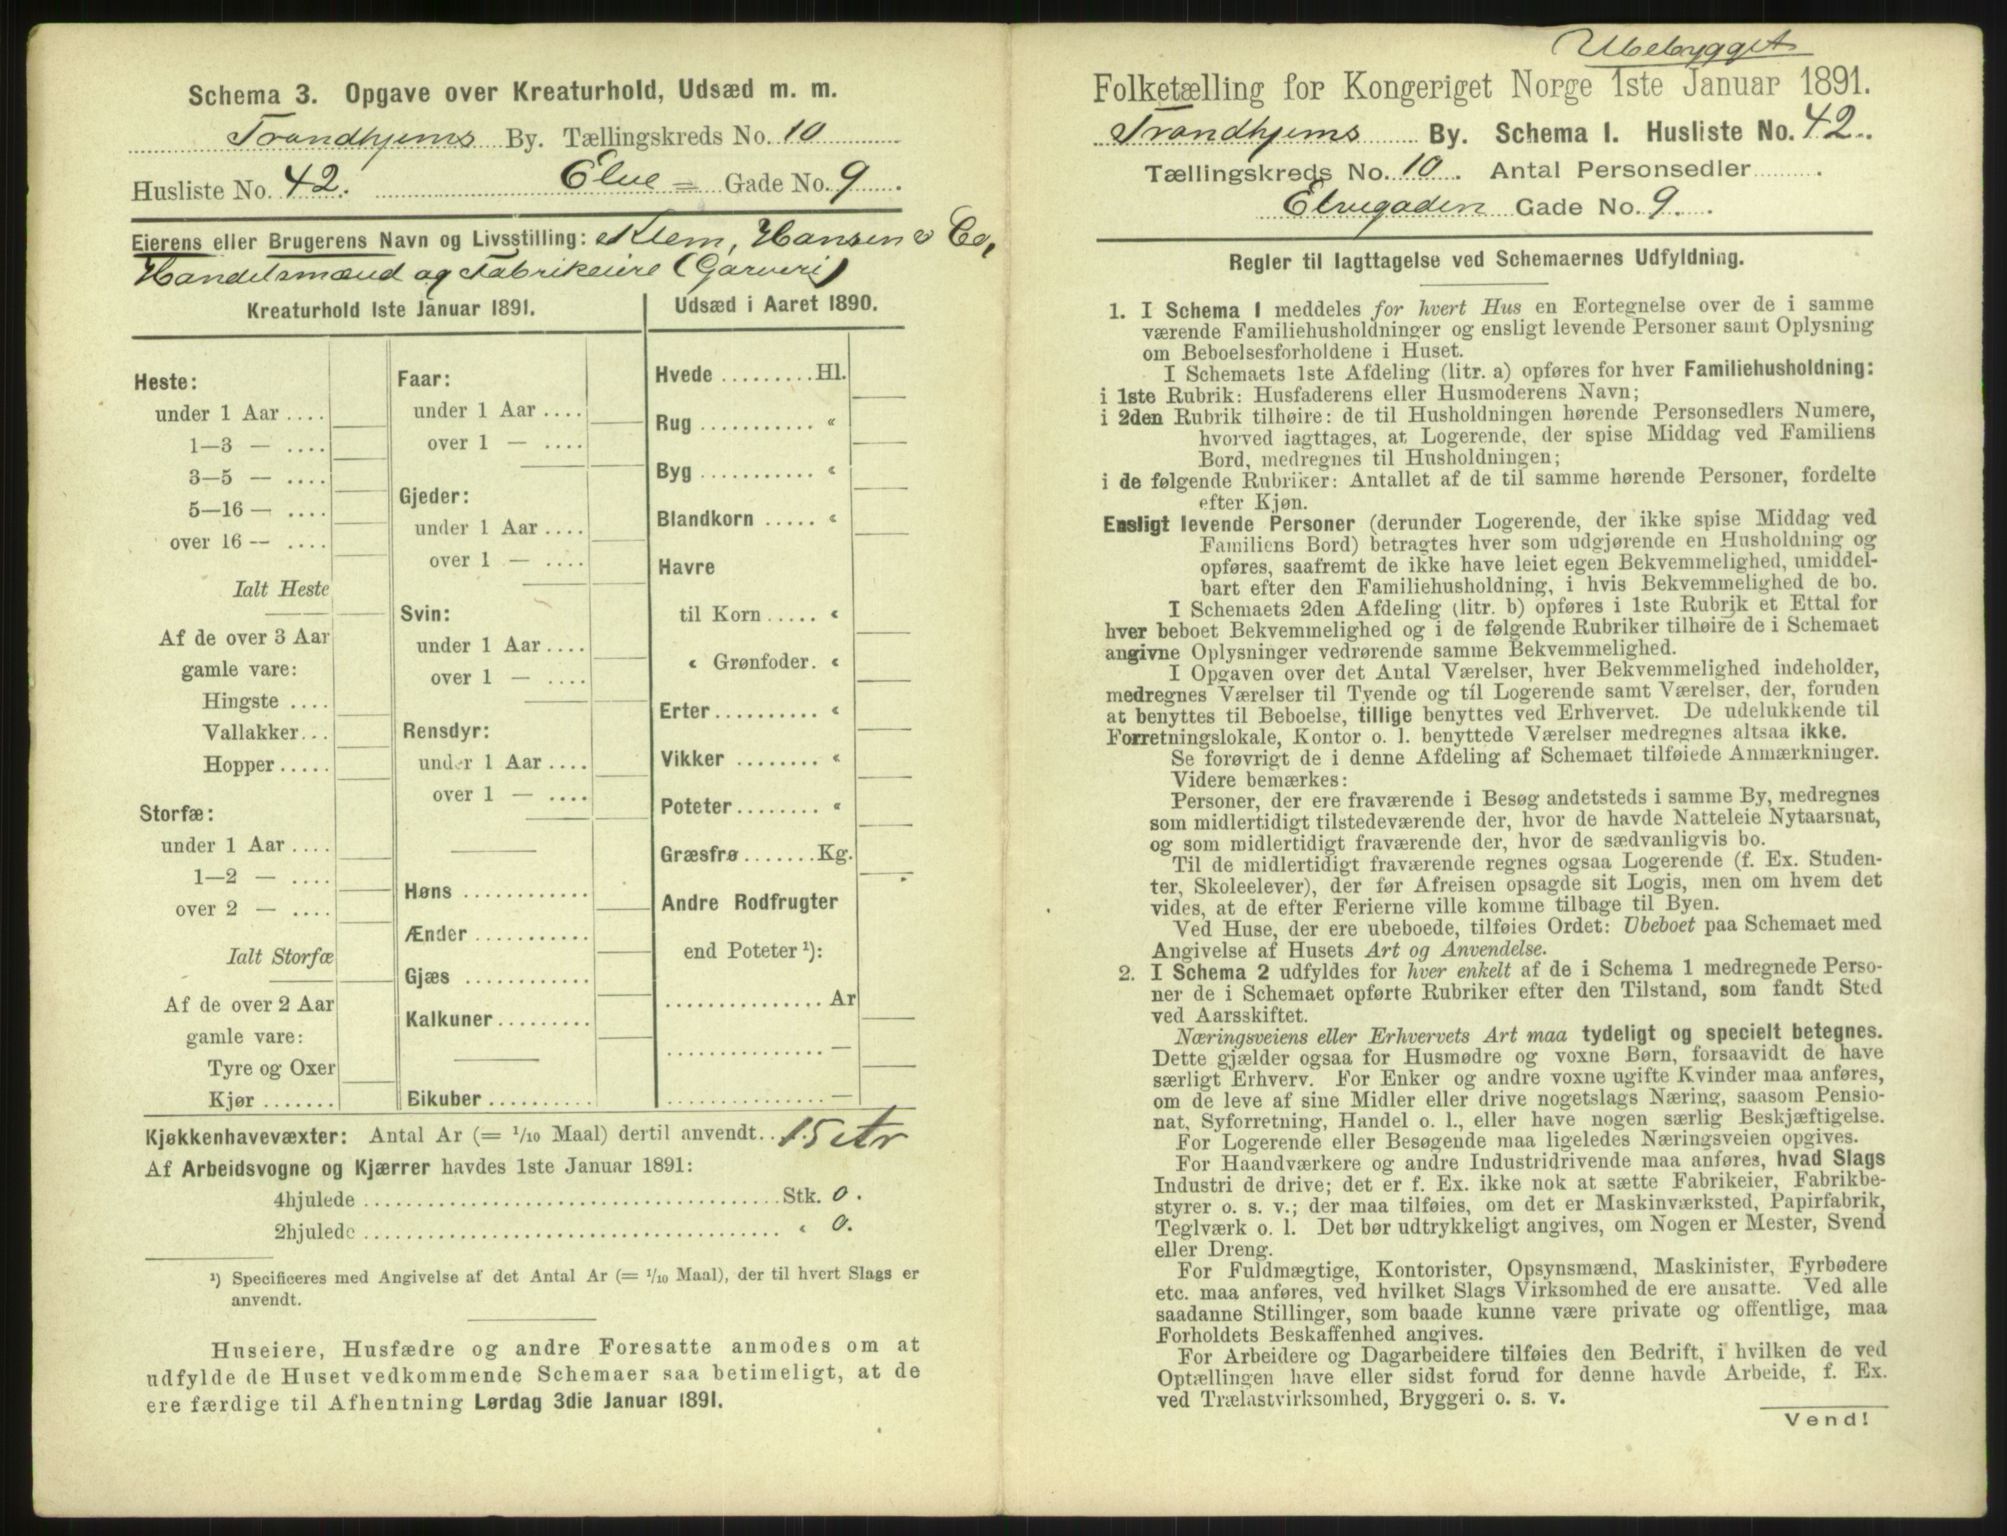 Schema 3. Opgave over Kreaturhold, Udsæd m. m.
Trondhjems By. Tællingskreds No. 10
Husliste No. 42. Elve = Gade No. 9.
Eierens eller Brugerens Navn og Livsstilling: Klem, Hansen & Co,
Handelsmænd og Fabrikeiere (Garveri)
Kreaturhold 1ste Januar 1891.
Heste:
under 1 Aar ....
1—3 — ....
3—5 — ....
5—16 — ....
over 16 — ....
Ialt Heste
Af de over 3 Aar
gamle vare:
Hingste ....
Vallakker...
Hopper.....
Storfæ:
under 1 Aar ....
1—2 — ....
over 2 — ....
Ialt Storfæ
Af de over 2 Aar
gamle vare:
Tyre og Oxer
Kjør .......
Faar:
under 1 Aar ....
over 1 — ....
Gjeder:
under 1 Aar ....
over 1 — ....
Svin:
under 1 Aar ....
over 1 — ....
Rensdyr:
under 1 Aar ....
over 1 — ....
Høns ............
Ænder ...........
Gjæs ............
Kalkuner.........
Eikuber ..........
Udsæd i Aaret 1890.
Hvede .........Hl.
Rug ........... "
Byg ........... "
Blandkorn ..... "
Havre
til Korn ..... "
" Grønfoder. "
Erter.......... "
Vikker ........ "
Poteter........ "
Græsfrø.......Kg.
Andre Rodfrugter
end Poteter ¹):
............... Ar
............... —
............... —
Kjøkkenhavevæxter: Antal Ar (= 1/10 Maal) dertil anvendt.. 15 Ar
Af Arbeidsvogne og Kjærrer havdes 1ste Januar 1891:
4hjulede ........................................Stk. 0.
2hjulede ........................................ " 0.
¹) Specificeres med Angivelse af det Antal Ar (= 1/10 Maal), der til hvert Slags er
anvendt.
Huseiere, Husfædre og andre Foresatte anmodes om at
udfylde de Huset vedkommende Schemaer saa betimeligt, at de
ere færdige til Afhentning Lørdag 3die Januar 1891.
Ubebygget
Folketælling for Kongeriget Norge 1ste Januar 1891.
Trondhjems By. Schema 1. Husliste No. 42.
Tællingskreds No. 10. Antal Personsedler.........
Elvegaden Gade No. 9.
Regler til Iagttagelse ved Schemaernes Udfyldning.
1. I Schema 1 meddeles for hvert Hus en Fortegnelse over de i samme
værende Familiehusholdninger og ensligt levende Personer samt Oplysning
om Beboelsesforholdene i Huset.
I Schemaets 1ste Afdeling (litr. a) opføres for hver Familiehusholdning:
i 1ste Rubrik: Husfaderens eller Husmoderens Navn;
i 2den Rubrik tilhøire: de til Husholdningen hørende Personsedlers Numere,
hvorved iagttages, at Logerende, der spise Middag ved Familiens
Bord, medregnes til Husholdningen;
i de følgende Rubriker: Antallet af de til samme hørende Personer, fordelte
efter Kjøn.
Ensligt levende Personer (derunder Logerende, der ikke spise Middag ved
Familiens Bord) betragtes hver som udgjørende en Husholdning og
opføres, saafremt de ikke have leiet egen Bekvemmelighed, umiddel-
bart efter den Familiehusholdning, i hvis Bekvemmelighed de bo.
I Schemaets 2den Afdeling (litr. b) opføres i 1ste Rubrik et Ettal for
hver beboet Bekvemmelighed og i de følgende Rubriker tilhøire de i Schemaet
angivne Oplysninger vedrørende samme Bekvemmelighed.
I Opgaven over det Antal Værelser, hver Bekvemmelighed indeholder,
medregnes Værelser til Tyende og til Logerende samt Værelser, der, foruden
at benyttes til Beboelse, tillige benyttes ved Erhvervet. De udelukkende til
Forretningslokale, Kontor o. l. benyttede Værelser medregnes altsaa ikke.
Se forøvrigt de i denne Afdeling af Schemaet tilføiede Anmærkninger.
Videre bemærkes:
Personer, der ere fraværende i Besøg andetsteds i samme By, medregnes
som midlertidigt tilstedeværende der, hvor de havde Natteleie Nytaarsnat,
og som midlertidigt fraværende der, hvor de sædvanligvis bo.
Til de midlertidigt fraværende regnes ogsaa Logerende (f. Ex. Studen-
ter, Skoleelever), der før Afreisen opsagde sit Logis, men om hvem det
vides, at de efter Ferierne ville komme tilbage til Byen.
Ved Huse, der ere ubeboede, tilføies Ordet: Ubeboet paa Schemaet med
Angivelse af Husets Art og Anvendelse.
2. I Schema 2 udfyldes for hver enkelt af de i Schema 1 medregnede Perso-
ner de i Schemaet opførte Rubriker efter den Tilstand, som fandt Sted
ved Aarsskiftet.
Næringsveiens eller Erhvervets Art maa tydeligt og specielt betegnes.
Dette gjælder ogsaa for Husmødre og voxne Børn, forsaavidt de have
særligt Erhverv. For Enker og andre voxne ugifte Kvinder maa anføres,
om de leve af sine Midler eller drive nogetslags Næring, saasom Pensio-
nat, Syforretning, Handel o. l., eller have nogen særlig Beskjæftigelse.
For Logerende eller Besøgende maa ligeledes Næringsveien opgives.
For Haandværkere og andre Industridrivende maa anføres, hvad Slags
Industri de drive; det er f. Ex. ikke nok at sætte Fabrikeier, Fabrikbe-
styrer o. s. v.; der maa tilføies, om det er Maskinværksted, Papirfabrik,
Teglværk o. l. Det bør udtrykkeligt angives, om Nogen er Mester, Svend
eller Dreng.
For Fuldmægtige, Kontorister, Opsynsmænd, Maskinister, Fyrbødere
etc. maa anføres, ved hvilket Slags Virksomhed de ere ansatte. Ved alle
saadanne Stillinger, som baade kunne være private og offentlige, maa
Forholdets Beskaffenhed angives.
For Arbeidere og Dagarbeidere tilføies den Bedrift, i hvilken de ved
Optællingen have eller sidst forud for denne havde Arbeide, f. Ex.
ved Trælastvirksomhed, Bryggeri o. s. v.
Vend!